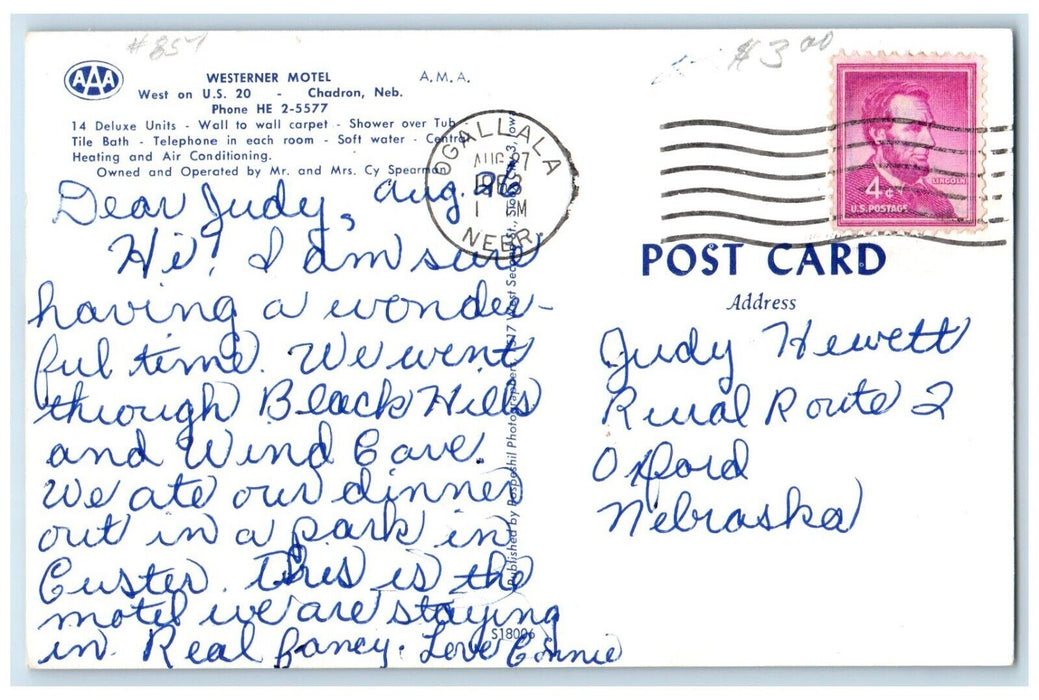 #857
$3.00
AAA
WESTERNER MOTEL A.M.A.
West on U.S. 20 - Chadron, Neb.
Phone HE 2-5577
14 Deluxe Units - Wall to wall carpet - Shower over Tub -
Tile Bath - Telephone in each room - Soft water - Central
Heating and Air Conditioning.
Owned and Operated by Mr. and Mrs. Cy Spearman
OGALLALA
AUG 27
NEBR
4¢
LINCOLN
U.S. POSTAGE
Dear Judy, Aug. 26
Hi! I am sure
having a wonder-
ful time. We went
through Black Hills
and Wind Cave.
We ate our dinner
out in a park in
Custer. This is the
motel we are staying
in. Real fancy. Love Connie
Published by Pospeshil Photographer, 517 West Second St.
S18006
POST CARD
Address
Judy Hewett
Rural Route 2
Oxford
Nebraska